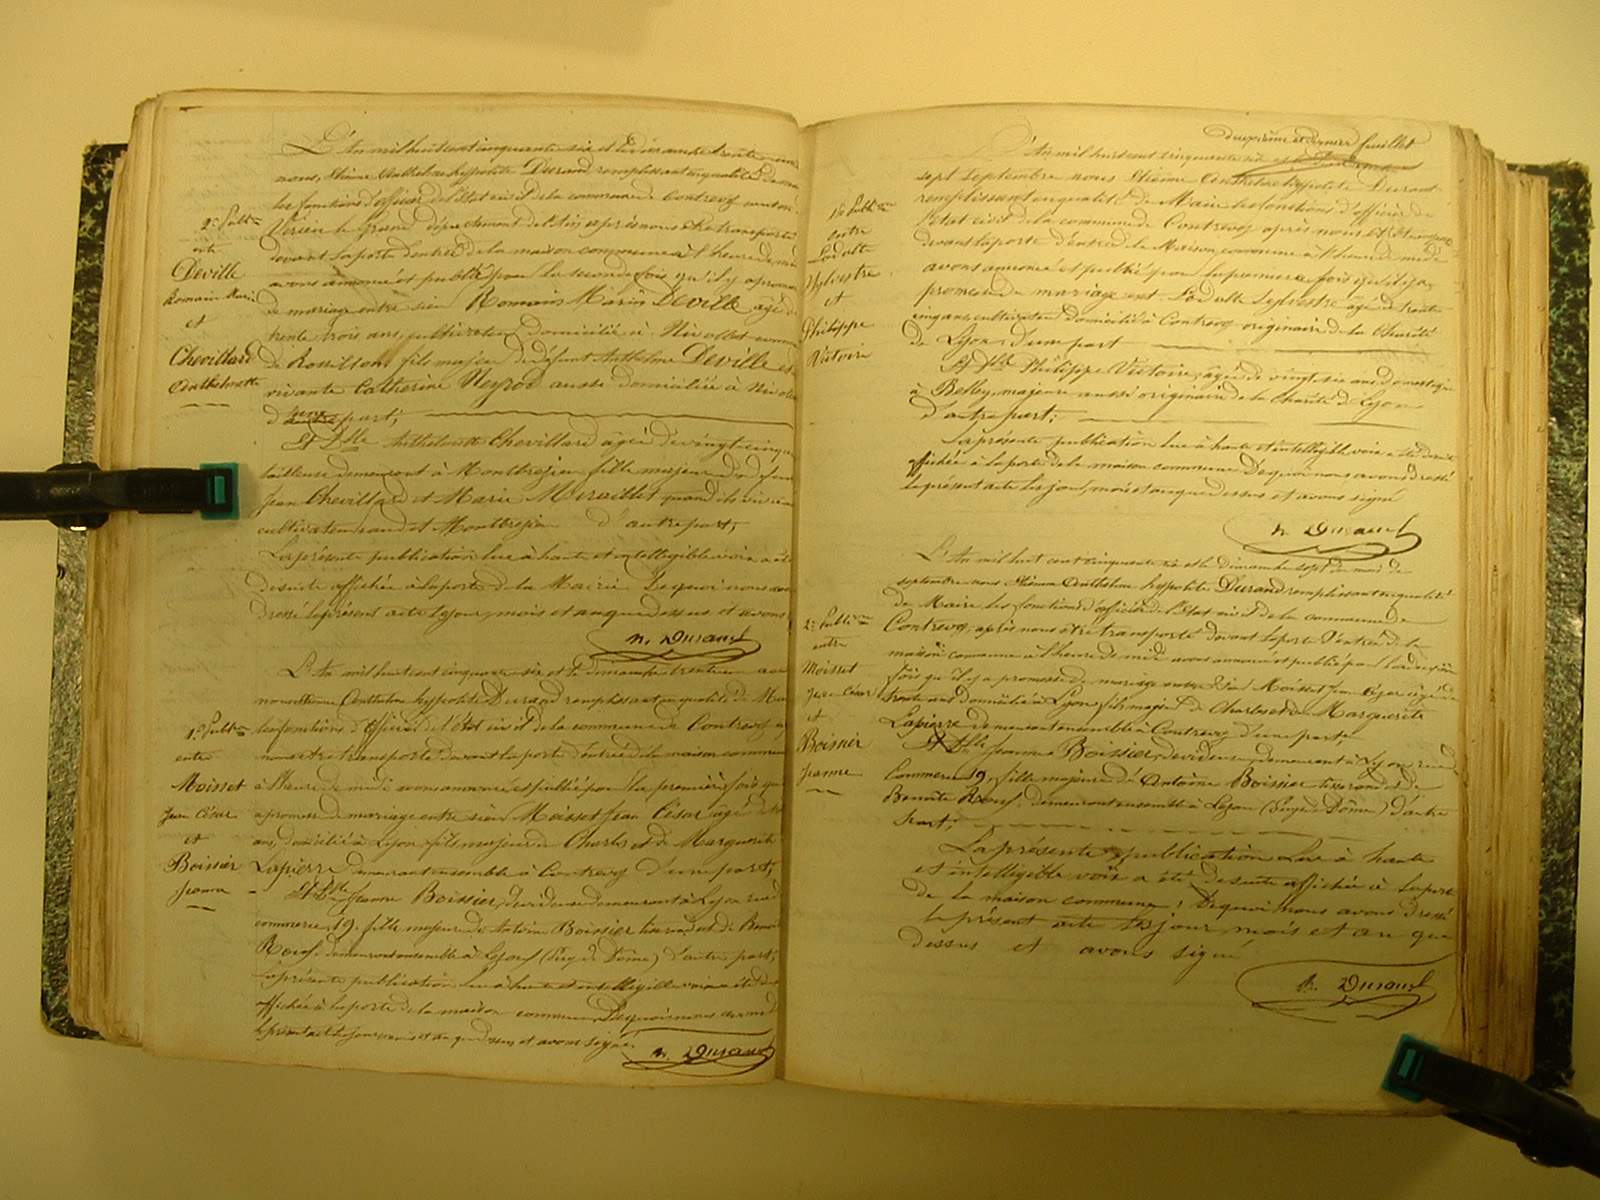 L'An mil huit cent cinquante six et le dimanche trente un
nous, Etienne Anthelme hyppolite Durand remplissant en qualité de
les fonctions d'officier de l'Etat civil de la commune de Contrevoz canton
Virieu le grand département de l'Ain après nous être transporté
devant la porte d'entrée de la maison commune à l'heure de midi
avons annoncé et publié pour la seconde fois qu'il y a promesse
de mariage entre sieur Romain Marin Deville âgé de
trente trois ans, cultivateur domicilié à
de Rossillon, fils majeur de défunt Anthelme Deville et
vivante Catherine Neyrod aussi domiciliée à
d'une part;
2e Publon
entre
Deville
Romain Marin
et
Chevillard
Anthelmette
Et Dlle Anthelmette Chevillard âgée de vingt cinq
tailleuse demeurant à fille majeure de défunt
Jean Chevillard et Marie quand ils vivaient
cultivateurs audit d'autre part;
La présente publication lue à haute et intelligible voix a été
de suite affichée à la porte de la Mairie De quoi nous avons
dressé le présent acte les jour, mois et an que dessus et avons
h. Durand
L'An mil huit cent cinquante six et le dimanche trente un
nous Etienne Anthelme hyppolite Durand remplissant en qualité de
les fonctions d'officier de l'état civil de la commune de Contrevoz
nous être transporté devant la porte d'entrée de la maison commune
à l'heure de midi avons annoncé et publié pour la première fois que
a promesse de mariage entre sieur Moisset Jean César âgé
ans, domicilié à Lyon fils majeur de Charles et de Marguerite
Lapierre demeurant ensemble à Contrevoz d'une part;
1e Publon
entre
Moisset
Jean César
et
Boissier
Jeanne
Et Dlle Jeanne Boissier, dévideuse demeurant à Lyon rue
commerce 19, fille majeure de Antoine Boissier tisserand et de Benoite
demeurant ensemble à (Puy de Dôme) d'autre part;
La présente publication lue à haute et intelligible voix a été de
affichée à la porte de la maison commune De quoi nous avons
le présent acte les jour mois et an que dessus et avons signé.
h. Durand
deuxième et dernier feuillet
L'An mil huit cent cinquante six et
sept Septembre nous Etienne Anthelme hyppolite Durand
remplissant en qualité de Maire les fonctions d'officier de
l'état civil de la commune de Contrevoz après nous être transporté
devant la porte d'entrée de la Maison commune à l'heure de midi
avons annoncé et publié pour la première fois qu'il y a
promesse de mariage entre Sylvestre âgé de trente
cinq ans cultivateur domicilié à Contrevoz originaire de la Charité
de Lyon, d'une part
1e Publon
entre
Sylvestre
et
Philippe
Victoire
Et Dlle Philippe Victoire, âgée de vingt six ans, domestique
à Belley, majeure aussi originaire de la Charité de Lyon
d'autre part;
La présente publication lue à haute et intelligible voix a été de suite
affichée à la porte de la maison commune De quoi nous avons dressé
le présent acte les jour, mois et an que dessus et avons signé
h. Durand
L'An mil huit cent cinquante six et le dimanche sept du mois de
septembre nous Etienne Anthelme hyppolite Durand remplissant en qualité
de Maire les fonctions d'officier de l'Etat civil de la commune de
Contrevoz, après nous être transporté devant la porte d'entrée de la
maison commune à l'heure de midi avons annoncé et publié pour la deuxième
fois qu'il y a promesse de mariage entre Sieur Moisset Jean César âgé de
trente ans domicilié à Lyon fils majeur de Charles et de Marguerite
Lapierre demeurant ensemble à Contrevoz d'une part;
2e Publion
entre
Moisset
Jean César
et
Boissier
Jeanne
Et Dlle Jeanne Boissier, dévideuse, demeurant à Lyon rue du
Commerce 19, fille majeure de Antoine Boissier tisserand et de
Benoite demeurant ensemble à (Puy de Dôme) d'autre
part;
La présente publication Lue à haute
et intelligible voix a été de suite affichée à la porte
de la maison commune; De quoi nous avons dressé
le présent acte les jour, mois et an que
dessus et avons signé
h. Durand